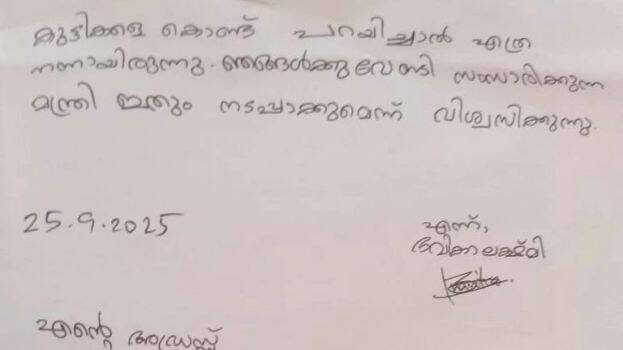 കുട്ടികളെ കൊണ്ട് പറയിച്ചാൽ എത്ര
നന്നായിരുന്നു. ഞങ്ങൾക്കുവേണ്ടി സംസാരിക്കുന്ന
മന്ത്രി ഇതും നടപ്പാക്കുമെന്ന് വിശ്വസിക്കുന്നു.
25.9.2025
എന്ന്,
ലക്ഷ്മി
എന്റെ അഡ്രസ്സ്